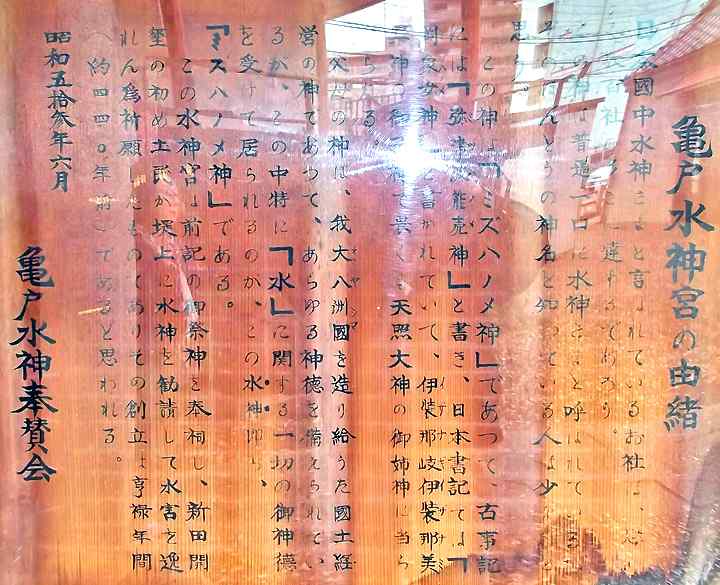 亀戸水神宮の由緒
日本國中水神さまと言はれているお社は
百社に達するであろう。
この神は普通一口に水神さまと呼ばれている
そのほんとうの神名を知っている人は少
思う。
この神は「ミズハノメ神」であつて、古事記
には「弥都波能売神」と書き、日本書記では「
罔象女神」と書かれていて、伊装那岐伊装那美
二神の御子神で畏くも天照大神の御姉神に当ら
らる。
父母の神は、我大八洲國を造り給うた國土経
営の神であつて、あらゆる神徳を備えられてい
るが、この中特に「水」に関する一切の御神徳
を受けて居られるのが、この水神即ち、
「ミズハノメ神」である。
この水神宮は前記の御祭神を奉祠し、新田開
墾の初め土民が堤上に水神を勧請して水害を逸
れん為祈願したものでありその創立は享禄年間
(約四四〇年前)であると思われる。
昭和五拾参年六月
亀戸水神奉賛会